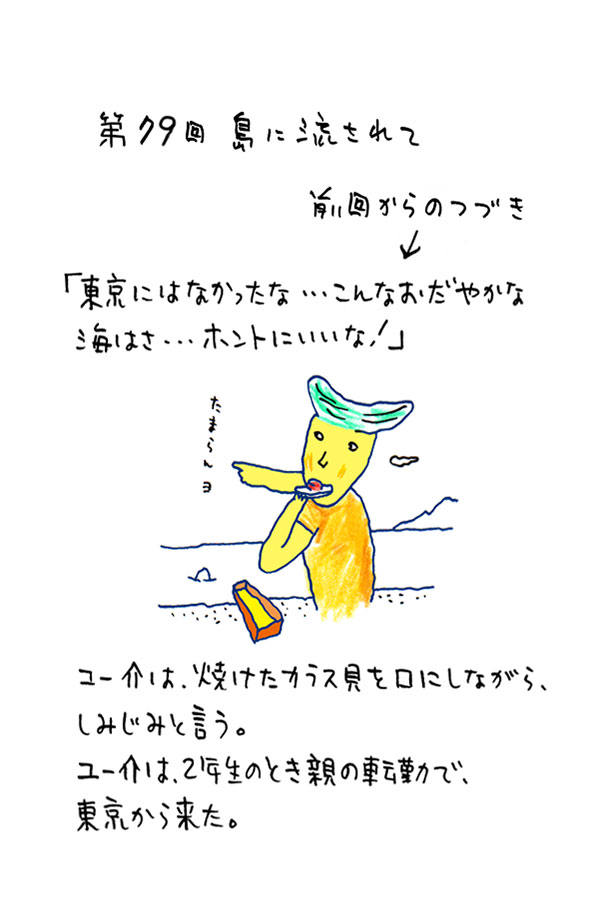 第79回 島に流されて
前回からのつづき
「東京にはなかったな…こんなおだやかな
海はさ…ホントにいいな！」
たまらんヨ
ユー介は、焼けたカラス貝を口にしながら、
しみじみと言う。
ユー介は、2年生のとき親の転勤で、
東京から来た。